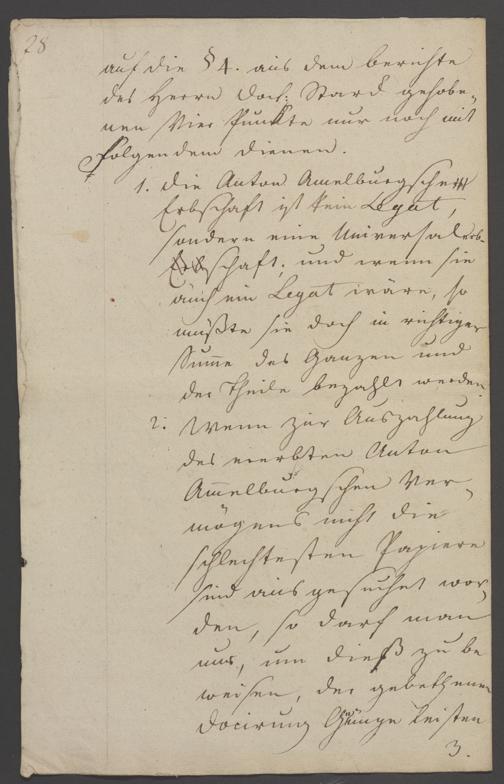 28
auf die § 4. aus dem berichte
des Herrn Doct: Stard gehobe¬
nen Vier Punkte nur noch mit
Folgendem dienen.
1. die Anton Amelburgsche
Erbschaft ist kein Legat,
sondern eine Universalerb¬
schaft; und wenn sie
auch ein Legat wäre, so
müßte sie doch in richtiger
Summe des Ganzen und
der Theile bezahlt werden
2. Wenn zur Auszahlung
des ererbten Anton
Amelburgschen Ver¬
mögens nicht die
schlechtesten Papiere
sind ausgesuchet wor¬
den, so darf man
nur, um dieß zu be
weisen, der gebethenen
Docirung Genüge leisten
3.